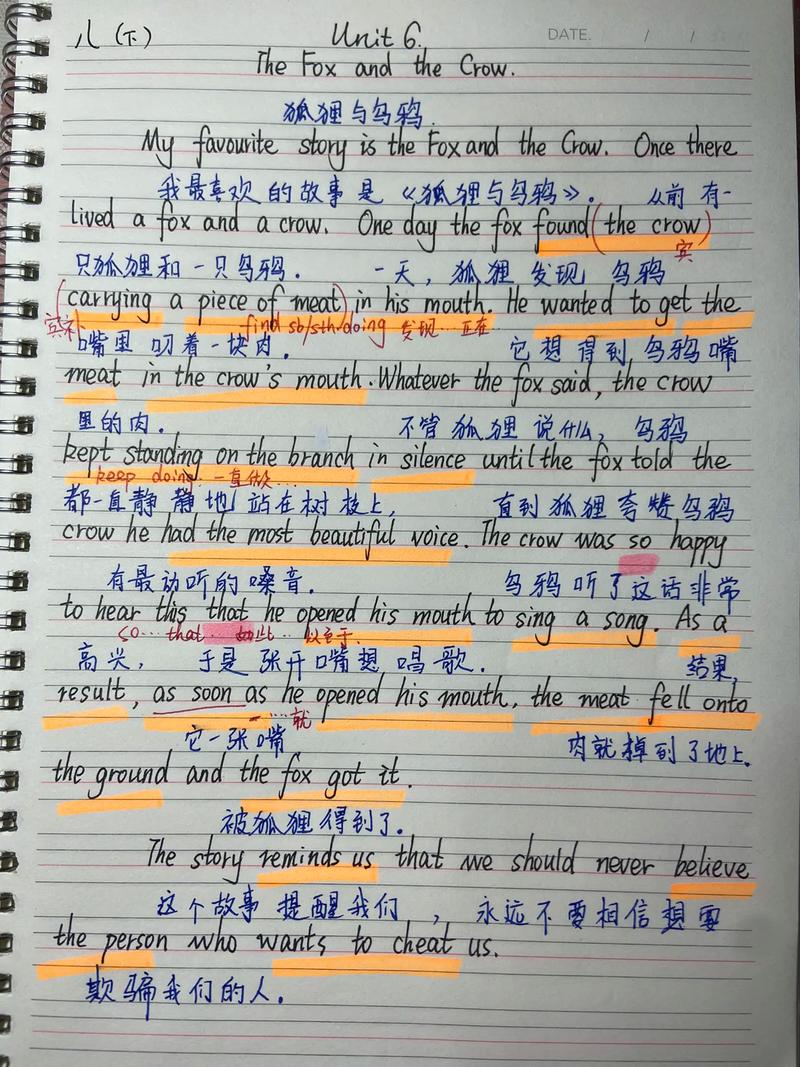 八(下) Unit 6. DATE. / /
The Fox and the Crow.
狐狸与乌鸦.
My favourite story is the Fox and the Crow. Once there
我最喜欢的故事是《狐狸与乌鸦》. 从前有一
lived a fox and a crow. One day the fox found (the crow)
宾
只狐狸和一只乌鸦. 一天, 狐狸发现 乌鸦
(carrying a piece of meat) in his mouth. He wanted to get the
宾补 find sb/sth doing 发现…正在…
嘴里叼着一块肉. 它想得到乌鸦嘴
meat in the crow's mouth. Whatever the fox said, the crow
里的肉. 不管狐狸说什么, 乌鸦
kept standing on the branch in silence until the fox told the
keep doing. 一直做…
都一直静静地站在树枝上, 直到狐狸夸赞乌鸦
crow he had the most beautiful voice. The crow was so happy
有最动听的嗓音. 乌鸦听了这话非常
to hear this that he opened his mouth to sing a song. As a
so…that…如此…以至于
高兴, 于是张开嘴想唱歌. 结果,
result, as soon as he opened his mouth, the meat fell onto
一…就
它一张嘴 肉就掉到了地上.
the ground and the fox got it.
被狐狸得到了.
The story reminds us that we should never believe
这个故事提醒我们, 永远不要相信想要
the person who wants to cheat us.
欺骗我们的人.